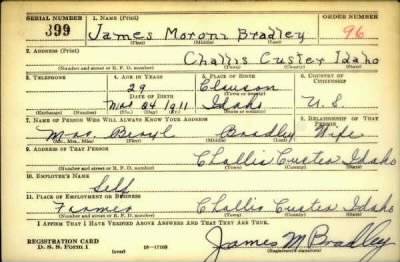 SERIAL NUMBER 1. NAME (Print) ORDER NUMBER
399 James Moroni Bradley 96
(First) (Middle) (Last)
2. ADDRESS (Print)
Challis Custer Idaho
(Number and street or R. F. D. number) (Town) (County) (State)
3. TELEPHONE 4. AGE IN YEARS 5. PLACE OF BIRTH 6. COUNTRY OF CITIZENSHIP
29 Clawson
DATE OF BIRTH (Town or county)
Mar 24 1911 Idaho U.S.
(Exchange) (Number) (Mo.) (Day) (Yr.) (State or country)
7. NAME OF PERSON WHO WILL ALWAYS KNOW YOUR ADDRESS 8. RELATIONSHIP OF THAT PERSON
Mrs. Beryl Bradley Wife
(Mr., Mrs., Miss) (First) (Middle) (Last)
9. ADDRESS OF THAT PERSON
Challis Custer Idaho
(Number and street or R. F. D. number) (Town) (County) (State)
10. EMPLOYER'S NAME
Self
11. PLACE OF EMPLOYMENT OR BUSINESS
Farmer Challis Custer Idaho
(Number and street or R. F. D. number) (Town) (County) (State)
I AFFIRM THAT I HAVE VERIFIED ABOVE ANSWERS AND THAT THEY ARE TRUE.
REGISTRATION CARD
D. S. S. Form 1 (over) 16—17105
James M Bradley
(Registrant's signature)